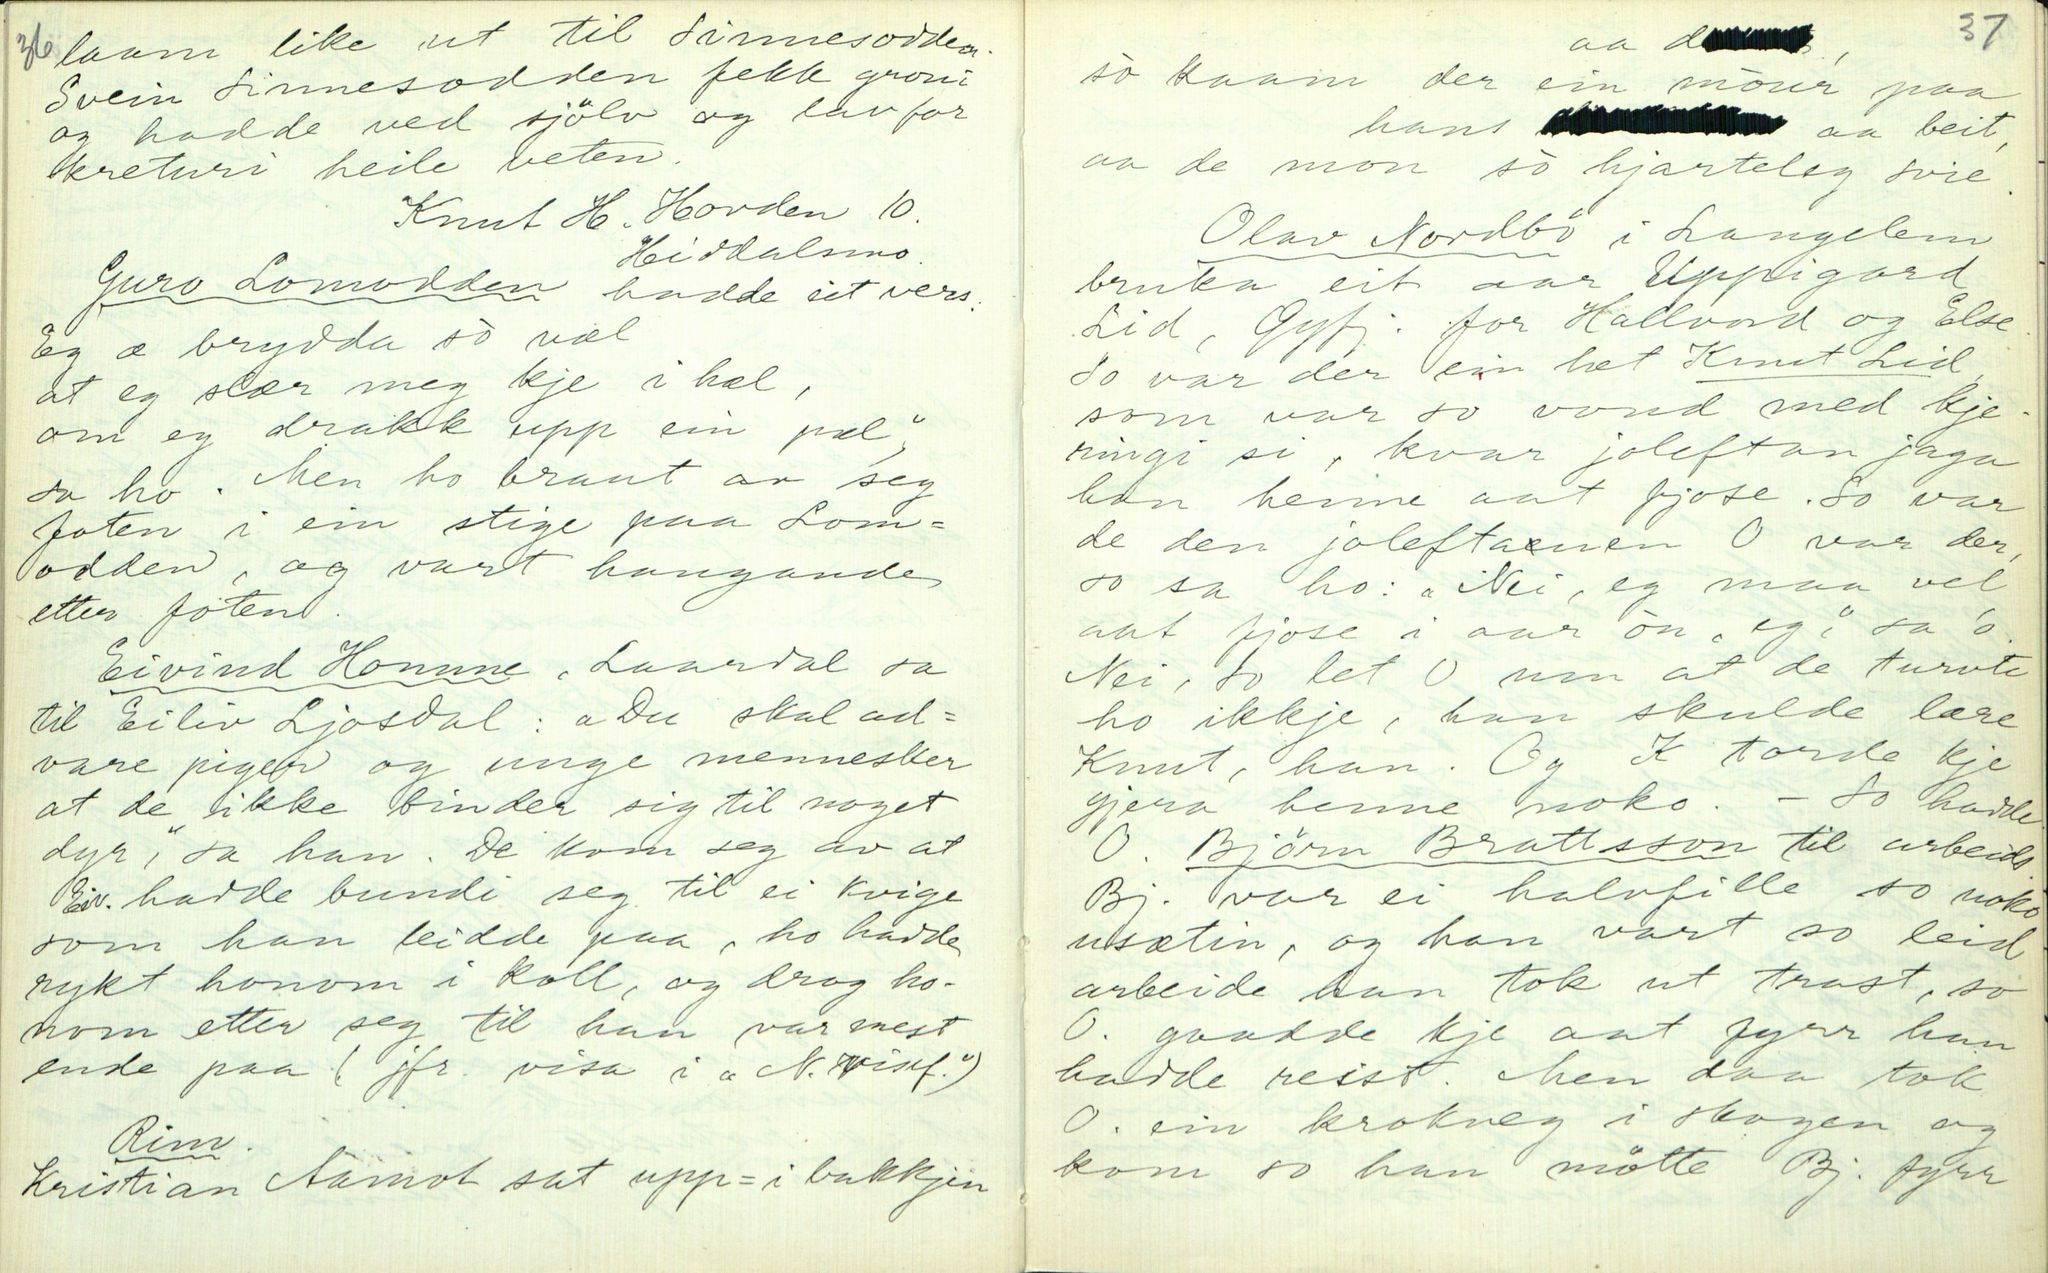 36
laam like ut til Sinnesodden.
Svein Sinnesodden fekk groni
og hadde ved sjölv og lav for
kreturi heile veten.
Knut H. Hovden 10.
Hiddalsmo.
Guro Lomodden hadde eit vers.
Eg æ brydda sò væl
at eg slær meg kje i hæl,
om eg drakk upp ein pæl",
sa ho. Men ho braut av seg
foten i ein stige paa Lom=
odden, og vart hangande
etter foten.
Eivind Homme, Laardal sa
til Eiliv Ljosdal: "Du skal ad=
vare piger og unge mennesker
at de ikke binder sig til noget
dyr," sa han. De kom seg av at
Eiv. hadde bundi seg til ei kvige
som han leidde paa, ho hadde
rykt honom i koll, og drog ho-
nom etter seg til han var mest
ende paa (jfr. visa i "N.
Rim.
Kristian Aamot sat upp=i bakkjen
37
aa
sò kaam der ein mòur paa
hans aa beit,
aa de mon sò hjarteleg svie.
Olav Nordbö i Langelem
bruka eit aar Uppigard
Lid, Gyfj. for Hallvord og Else.
So var der ein het Knut Lid,
som var so vond med kje-
ringi si, kvar joleftan jaga
han henne aat fjose. So var
de den joleftaenen O var der,
so sa ho: "Nei, eg maa vel
aat fjose i aar òn, eg," sa 'o.
Nei, so let O um at de turvte
ho ikkje, han skulde lære
Knut, han. Og K torde kje
gjera henne noko. - So hadde
O. Björn Brattsson til arbeids.
Bj. var ei halvfille so noko
usætin, og han vart so leid
arbeide han tok ut trast, so
O. gaadde kje aat fyrr han
hadde reist. Men daa tok
O. ein krokveg i skogen og
kom so han mötte Bj. fyrr